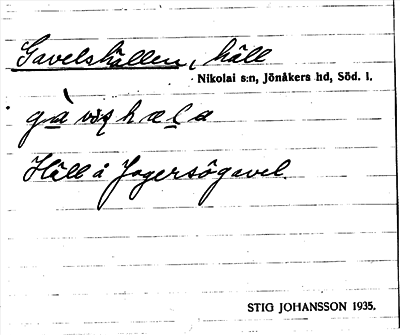 Gavelshällen, häll
Nikolai s:n, Jönåkers hd, Söd. l.
Häll å Jogersögavel.
STIG JOHANSSON 1935.